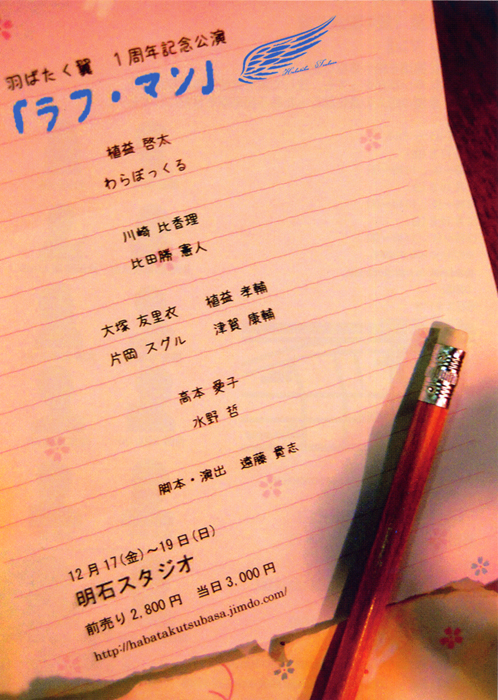 羽ばたく翼 1周年記念公演
「ラフ・マン」
植益 啓太
わらぽっくる
川崎 比香理
比田勝 憲人
大塚 友里衣 植益 孝輔
片岡 スグル 津賀 康輔
高本 愛子
水野 哲
脚本・演出 遠藤 貴志
12月17(金)~19日(日)
明石スタジオ
前売り2,800円 当日3,000円
http://habatakutsubasa.jimdo.com/